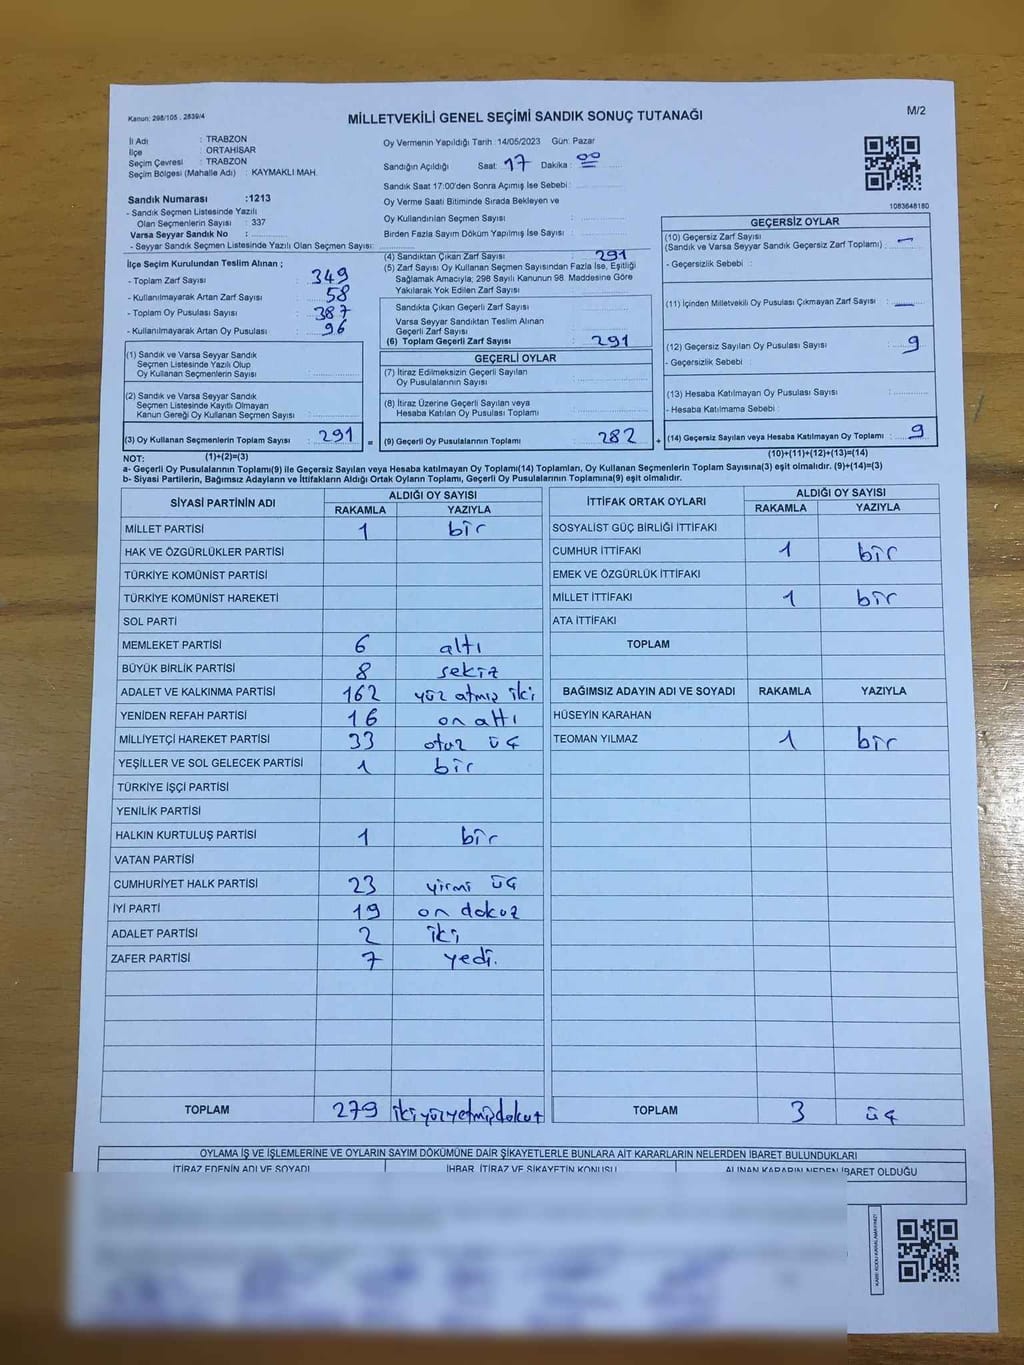 Kanun: 298/105 , 2839/4
MİLLETVEKİLİ GENEL SEÇİMİ SANDIK SONUÇ TUTANAĞI
M/2
İl Adı : TRABZON
İlçe : ORTAHİSAR
Seçim Çevresi : TRABZON
Seçim Bölgesi (Mahalle Adı) : KAYMAKLI MAH.
Sandık Numarası :1213
- Sandık Seçmen Listesinde Yazılı
Olan Seçmenlerin Sayısı : 337
Varsa Seyyar Sandık No :
- Seyyar Sandık Seçmen Listesinde Yazılı Olan Seçmen Sayısı:
Oy Vermenin Yapıldığı Tarih : 14/05/2023 Gün: Pazar
Sandığın Açıldığı Saat: 17 Dakika : 00
Sandık Saat 17:00'den Sonra Açılmış İse Sebebi :
Oy Verme Saati Bitiminde Sırada Bekleyen ve
Oy Kullandırılan Seçmen Sayısı :
Birden Fazla Sayım Döküm Yapılmış İse Sayısı :
1083648180
İlçe Seçim Kurulundan Teslim Alınan ;
- Toplam Zarf Sayısı : 349
- Kullanılmayarak Artan Zarf Sayısı : 58
- Toplam Oy Pusulası Sayısı : 387
- Kullanılmayarak Artan Oy Pusulası : 96
(1) Sandık ve Varsa Seyyar Sandık
Seçmen Listesinde Yazılı Olup
Oy Kullanan Seçmenlerin Sayısı :
(2) Sandık ve Varsa Seyyar Sandık
Seçmen Listesinde Kayıtlı Olmayan
Kanun Gereği Oy Kullanan Seçmen Sayısı :
(3) Oy Kullanan Seçmenlerin Toplam Sayısı : 291 =
(1)+(2)=(3)
(4) Sandıktan Çıkan Zarf Sayısı : 291
(5) Zarf Sayısı Oy Kullanan Seçmen Sayısından Fazla İse, Eşitliği
Sağlamak Amacıyla; 298 Sayılı Kanunun 98. Maddesine Göre
Yakılarak Yok Edilen Zarf Sayısı :
Sandıkta Çıkan Geçerli Zarf Sayısı :
Varsa Seyyar Sandıktan Teslim Alınan
Geçerli Zarf Sayısı :
(6) Toplam Geçerli Zarf Sayısı : 291
GEÇERLİ OYLAR
(7) İtiraz Edilmeksizin Geçerli Sayılan
Oy Pusulalarının Sayısı :
(8) İtiraz Üzerine Geçerli Sayılan veya
Hesaba Katılan Oy Pusulası Toplamı :
(9) Geçerli Oy Pusulalarının Toplamı : 282 +
GEÇERSİZ OYLAR
(10) Geçersiz Zarf Sayısı
(Sandık ve Varsa Seyyar Sandık Geçersiz Zarf Toplamı) : —
- Geçersizlik Sebebi :
(11) İçinden Milletvekili Oy Pusulası Çıkmayan Zarf Sayısı : —
(12) Geçersiz Sayılan Oy Pusulası Sayısı : 9
- Geçersizlik Sebebi :
(13) Hesaba Katılmayan Oy Pusulası Sayısı :
- Hesaba Katılmama Sebebi :
(14) Geçersiz Sayılan veya Hesaba Katılmayan Oy Toplamı : 9
(10)+(11)+(12)+(13)=(14)
NOT:
a- Geçerli Oy Pusulalarının Toplamı(9) ile Geçersiz Sayılan veya Hesaba katılmayan Oy Toplamı(14) Toplamları, Oy Kullanan Seçmenlerin Toplam Sayısına(3) eşit olmalıdır. (9)+(14)=(3)
b- Siyasi Partilerin, Bağımsız Adayların ve İttifakların Aldığı Ortak Oyların Toplamı, Geçerli Oy Pusulalarının Toplamına(9) eşit olmalıdır.
SİYASİ PARTİNİN ADI ALDIĞI OY SAYISI
RAKAMLA YAZIYLA
MİLLET PARTİSİ 1 bir
HAK VE ÖZGÜRLÜKLER PARTİSİ
TÜRKİYE KOMÜNİST PARTİSİ
TÜRKİYE KOMÜNİST HAREKETİ
SOL PARTİ
MEMLEKET PARTİSİ 6 altı
BÜYÜK BİRLİK PARTİSİ 8 sekiz
ADALET VE KALKINMA PARTİSİ 162 yüz atmış iki
YENİDEN REFAH PARTİSİ 16 on altı
MİLLİYETÇİ HAREKET PARTİSİ 33 otuz üç
YEŞİLLER VE SOL GELECEK PARTİSİ 1 bir
TÜRKİYE İŞÇİ PARTİSİ
YENİLİK PARTİSİ
HALKIN KURTULUŞ PARTİSİ 1 bir
VATAN PARTİSİ
CUMHURİYET HALK PARTİSİ 23 yirmi üç
İYİ PARTİ 19 on dokuz
ADALET PARTİSİ 2 iki
ZAFER PARTİSİ 7 yedi.
TOPLAM 279 ikiyüzyetmişdokuz
İTTİFAK ORTAK OYLARI ALDIĞI OY SAYISI
RAKAMLA YAZIYLA
SOSYALİST GÜÇ BİRLİĞİ İTTİFAKI
CUMHUR İTTİFAKI 1 bir
EMEK VE ÖZGÜRLÜK İTTİFAKI
MİLLET İTTİFAKI 1 bir
ATA İTTİFAKI
TOPLAM
BAĞIMSIZ ADAYIN ADI VE SOYADI RAKAMLA YAZIYLA
HÜSEYİN KARAHAN
TEOMAN YILMAZ 1 bir
TOPLAM 3 üç
OYLAMA İŞ VE İŞLEMLERİNE VE OYLARIN SAYIM DÖKÜMÜNE DAİR ŞİKAYETLERLE BUNLARA AİT KARARLARIN NELERDEN İBARET BULUNDUKLARI
İTİRAZ EDENİN ADI VE SOYADI İHBAR, İTİRAZ VE ŞİKAYETİN KONUSU ALINAN KARARIN NEDEN İBARET OLDUĞU